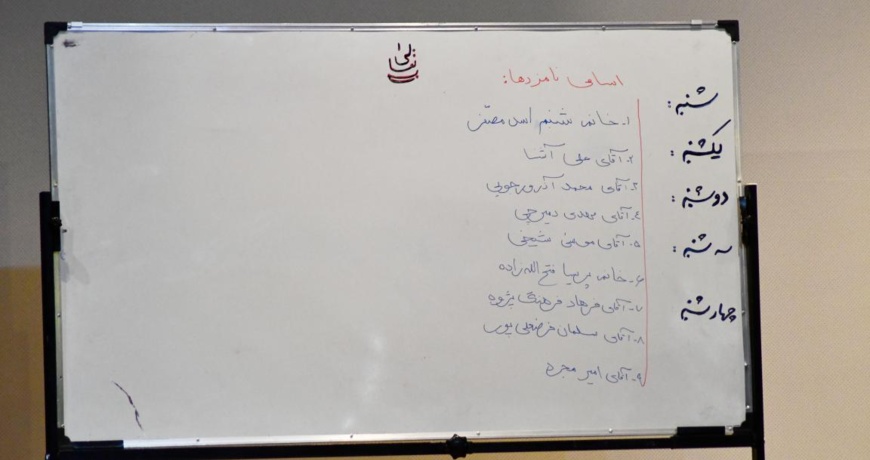 اسامی نامزدها:
شنبه:
یکشنبه:
دوشنبه:
سه شنبه:
چهارشنبه
۱- خانم شبنم اسد
۲- آقای علی آتنا
۳- آقای محمد
۴- آقای مهدی
۵- آقای مومن شیخی
۶- خانم پریسا فتح الله زاده
۷- آقای فرهاد فرهنگ پژوه
۸- آقای سلمان فرضعلی پور
۹- آقای امیر مجرد